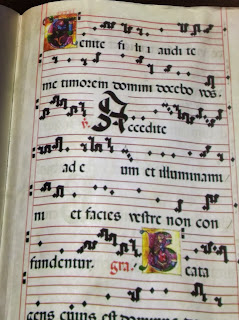 Venite filii audite
me timorem domini docebo vos.
V. Accedite
ad e um et illuminami
ni et facies vestre non con
fundentur. gra. Beata
gens cuius est dominus